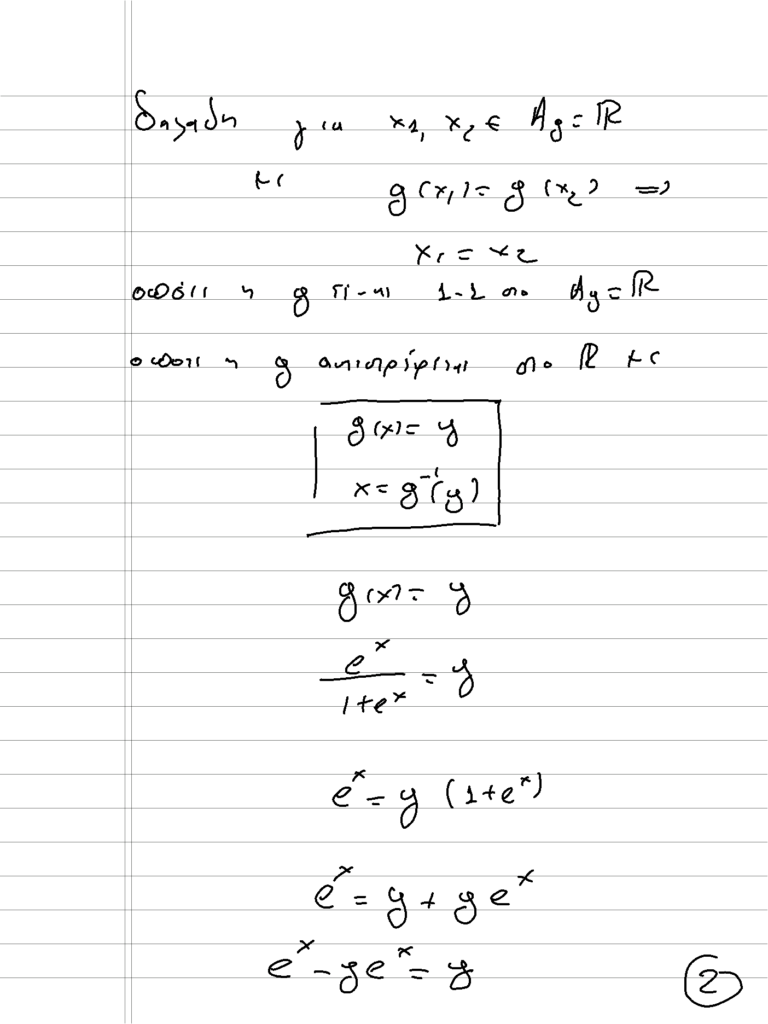 δηλαδή για x1, x2 ∈ Ag = ℝ
με g(x1) = g(x2) ⇒
x1 = x2
οπότε η g είναι 1-1 στο Ag = ℝ
οπότε η g αντιστρέφεται στο ℝ με
g(x) = y
x = g⁻¹(y)
g(x) = y
e^x / (1+e^x) = y
e^x = y (1+e^x)
e^x = y + y e^x
e^x - y e^x = y
2